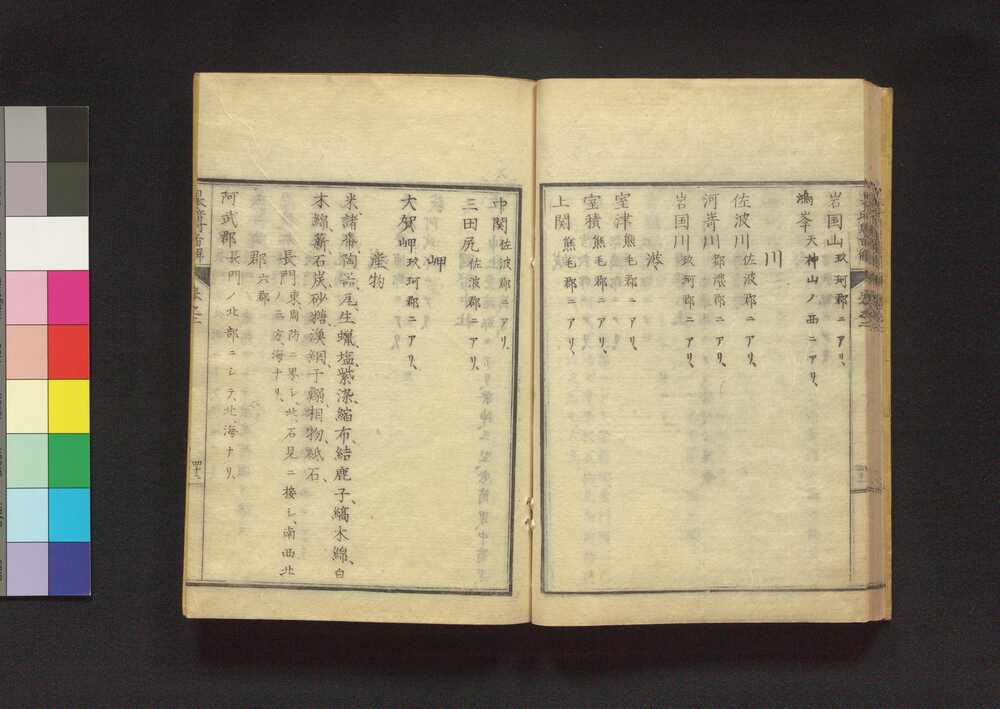 岩国山玖珂郡ニアリ、
鴻峯天神山ノ西ニアリ、
川
佐波川佐波郡ニアリ、
河嵜川都濃郡ニアリ、
岩国川玖珂郡ニアリ、
港
室津熊毛郡ニアリ、
室積熊毛郡ニアリ、
上関熊毛郡ニアリ、
中関佐波郡ニアリ、
三田尻佐波郡ニアリ、
岬
大賀岬玖珂郡ニアリ、
産物
米、諸番、陶器、瓦、生蠟、塩、紫染、縮布、結鹿子、縞木綿、白
木綿、薪、石炭、砂糖、漁網、干鰯、相物、紙、石、
長門東周防ニ界シ、北、石見ニ接シ、南西北
ノ三方、海ナリ、
郡六郡
阿武郡長門ノ北部ニシテ、北、海ナリ、